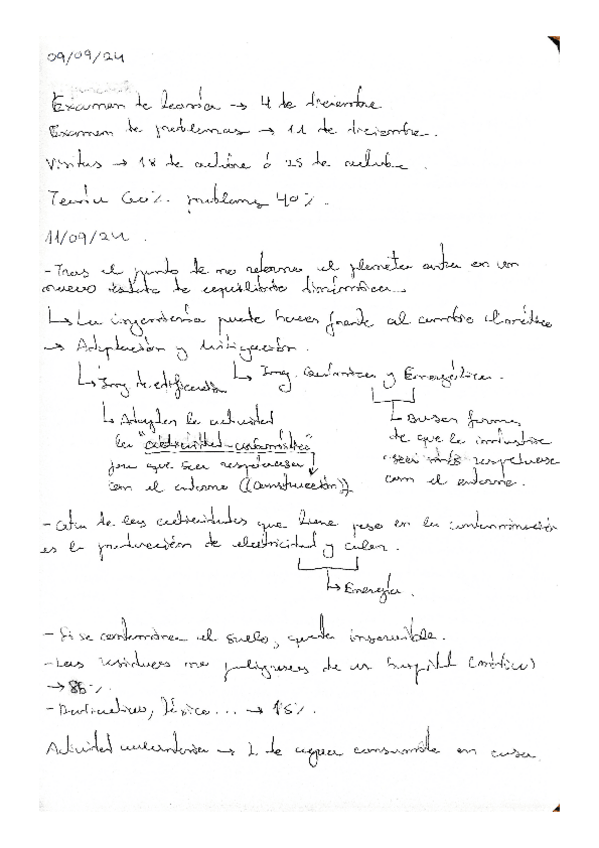 09/09/24
Examen de teoría → 4 de diciembre.
Examen de problemas → 11 de diciembre.
Visitas → 18 de octubre ó 25 de octubre.
Teoría 60% problemas 40%.
11/09/24.
- Tras el punto de no retorno el planeta entra en un
nuevo estado de equilibrio dinámico.
↳ La ingeniería puede hacer frente al cambio climático
→ Adaptación y Mitigación.
↳ Ing. de edificación ↳ Ing. Química y Energética.
↳ Adaptan la actividad ↳ Buscar forma
la "actividad contaminante" de que la industria
para que sea respetuosa sea más respetuosa
con el entorno ((construcción)) con el entorno.
- Otra de las actividades que tiene peso en la contaminación
es la producción de electricidad y calor.
↳ Energía.
- Si se contamina el suelo, queda inservible.
- Los residuos no peligrosos de un hospital (médico)
→ 85%.
- Radioactivo, tóxico... → 15%.
Actividad voluntaria → L de agua consumida en casa.